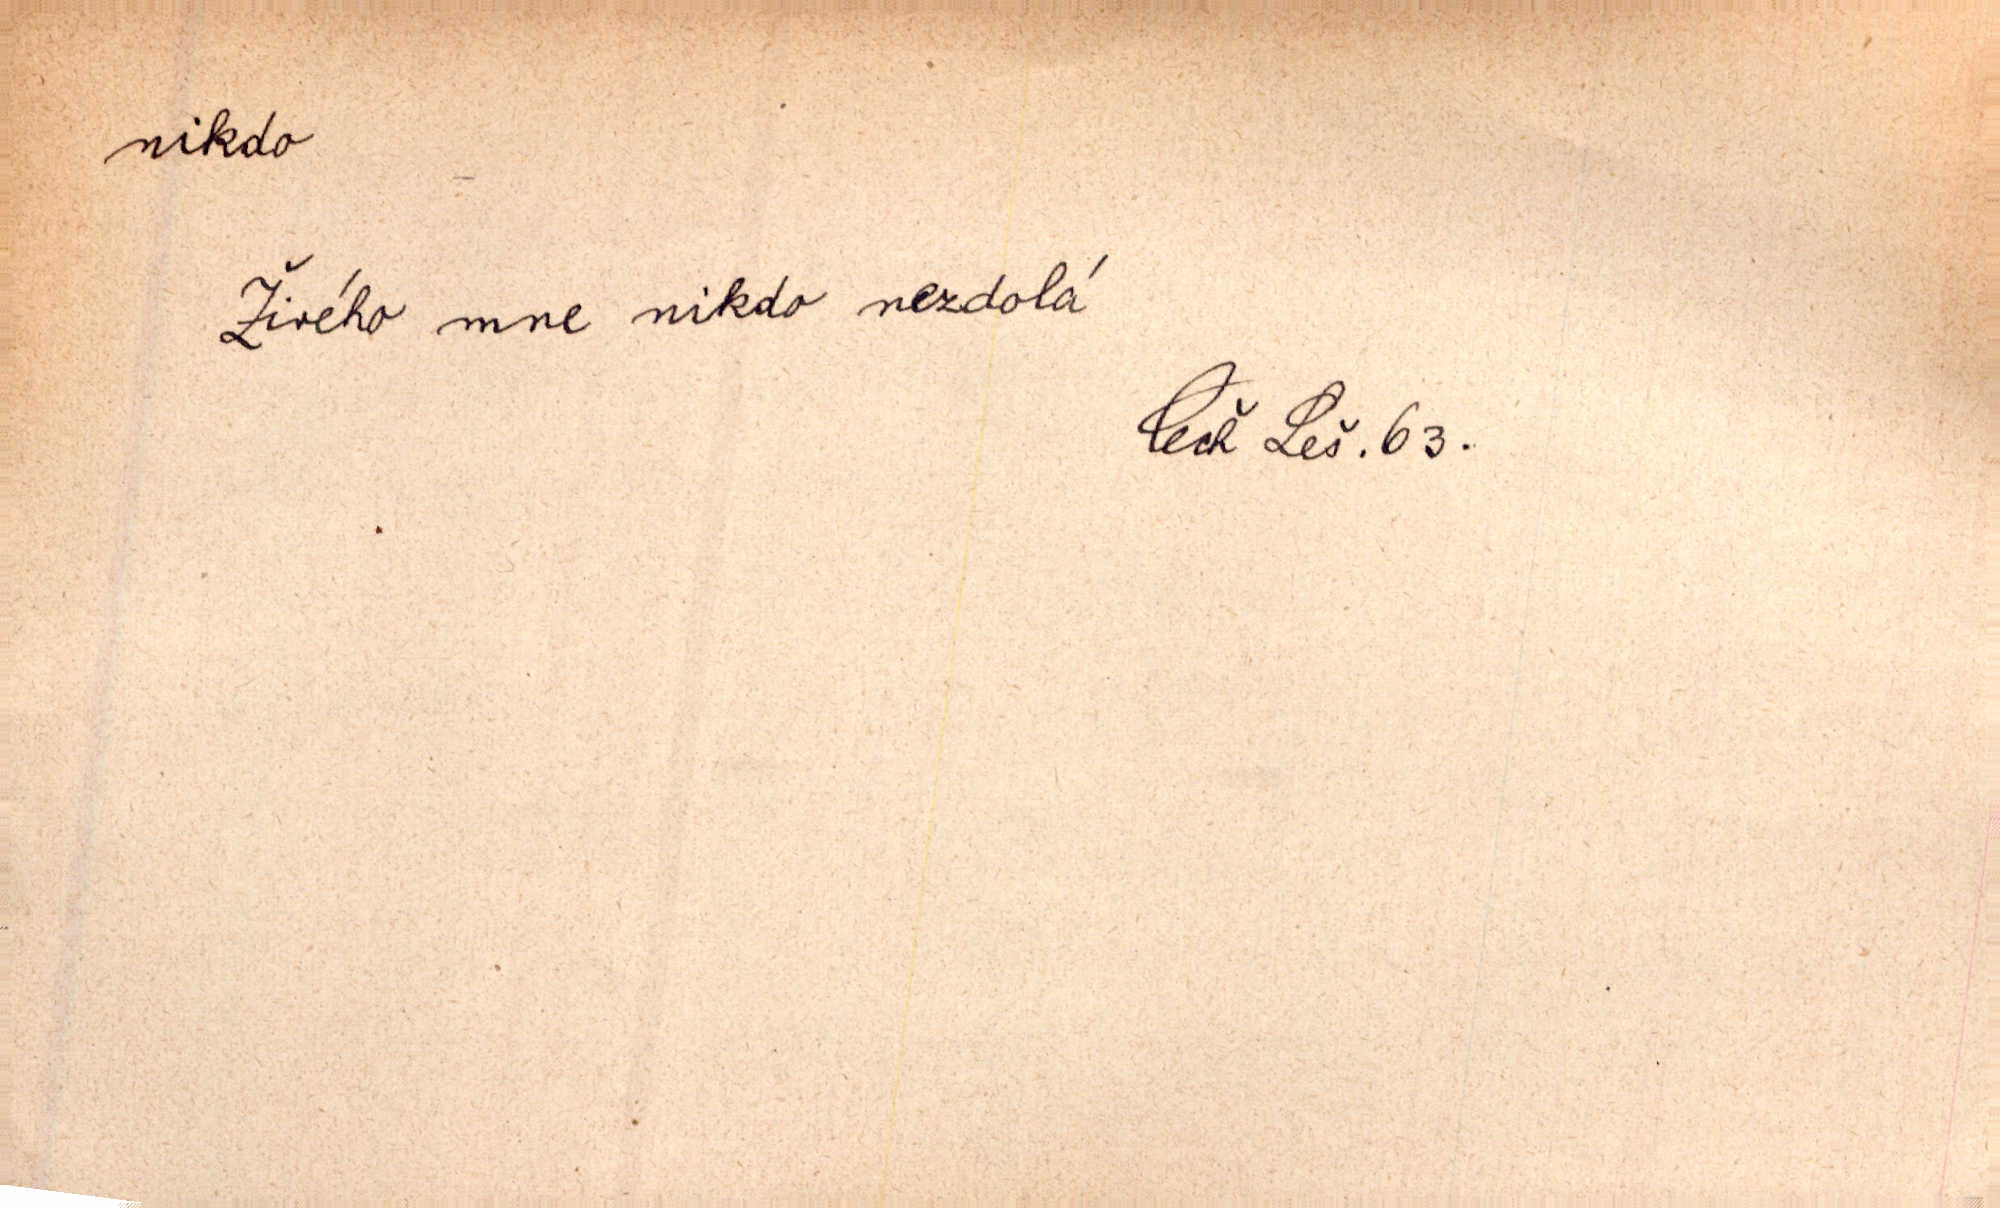 nikdo
Živého mne nikdo nezdolá
Čech Leš. 63.